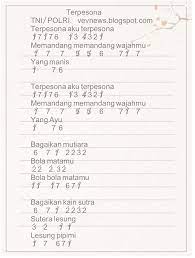 Terpesona
TNI/ POLRI. vevnews.blogspot.com
Terpesona aku terpesona
1 1 1 76 13 4321
Memandang memandang wajahmu
1 7 7 5 5 6 7 1 7
Yang manis
1 7 6
Terpesona aku terpesona
1 1 1 76 13 4321
Memandang memandang wajahmu
1 7 7 5 5 6 7 1 7
Yang Ayu
7 6
Bagaikan mutiara
6 7 1 2232
Bola matamu
22 2.32
Bola bola matamu
11 17 671
Bagaikan kain sutra
6 7 1 2232
Sutera lesung
3 2 1 2
Lesung pipimi
1 17 671